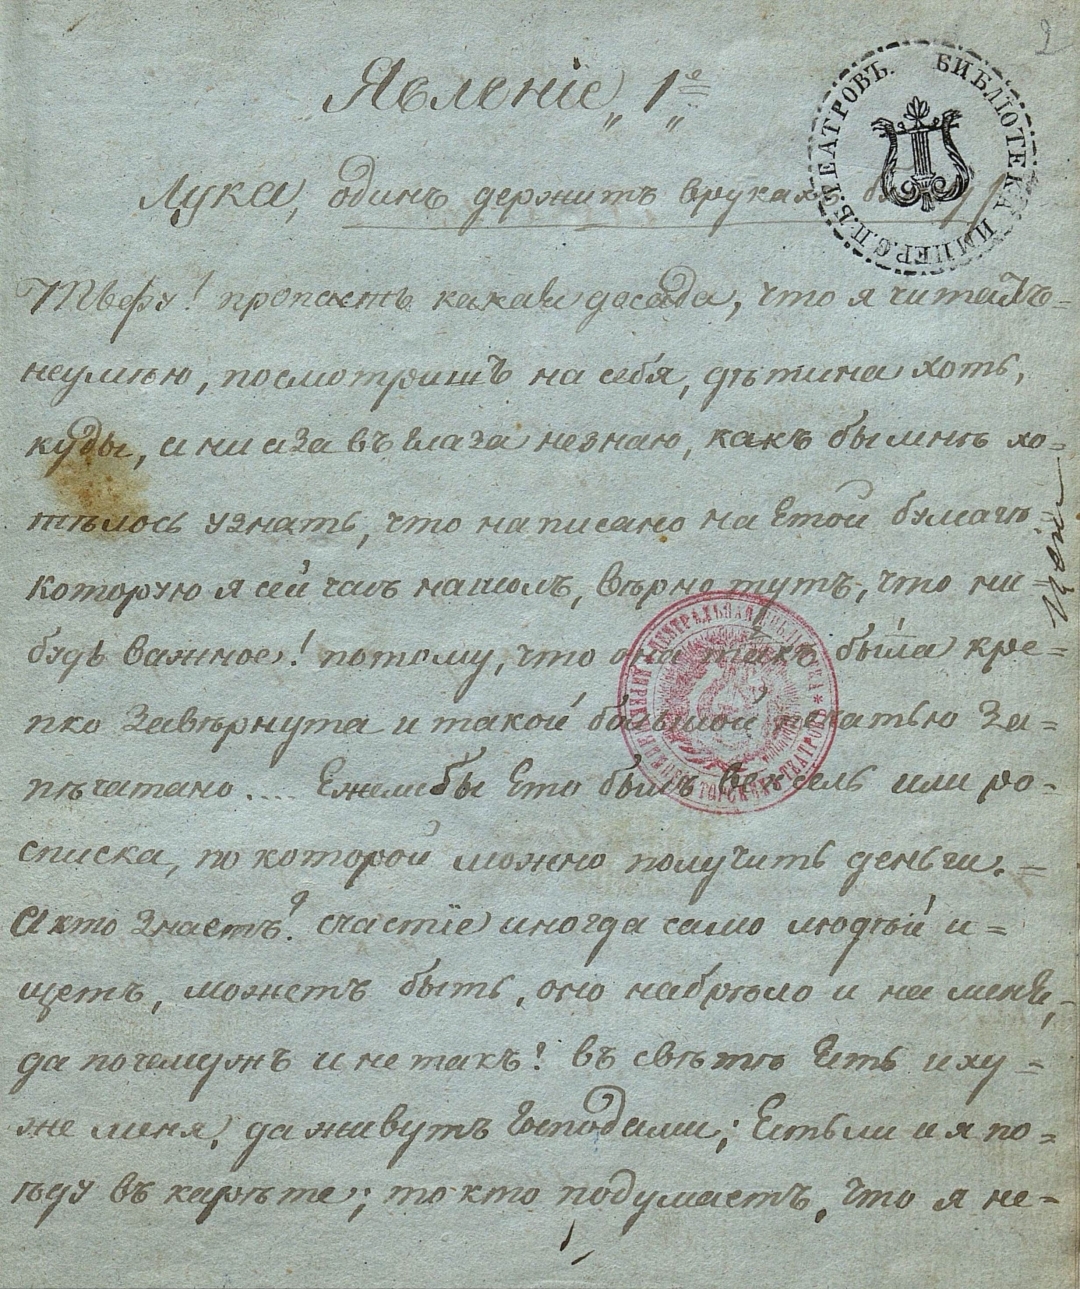 2
Явленіе 1е
Лука, одинъ держитъ врукахъ
БИБЛІОТЕКА ИМПЕР. С.П.Б. ТЕАТРОВЪ.
Тьфу! пропасть какая досада, что я читать-
неумѣю, посмотришъ на себя, дѣтина хоть,
куды, а ни аза въ глаза незнаю, какъ бы мнѣ хо-
тѣлось узнать, что написано на Етой бумагѣ
которую я сей часъ нашолъ, вѣрно тутъ, что ни
будь важное! потому, что она такъ была кре=
пко завѣрнута и такой большой печатью за-
пѣчатано .... Ежелибы Ето былъ вексель или ро-
списка, по которой можно получить деньги.=
А кто знаетъ? счастїе иногда само людѣй и=
щетъ, можетъ быть, оно набрѣло и на меня,
да почемужъ и не такъ! въ свѣтѣ Есть и ху-
же меня, да живутъ Господами; Естьли и я по=
ѣду въ карѣте; то кто подумаетъ, что я не-